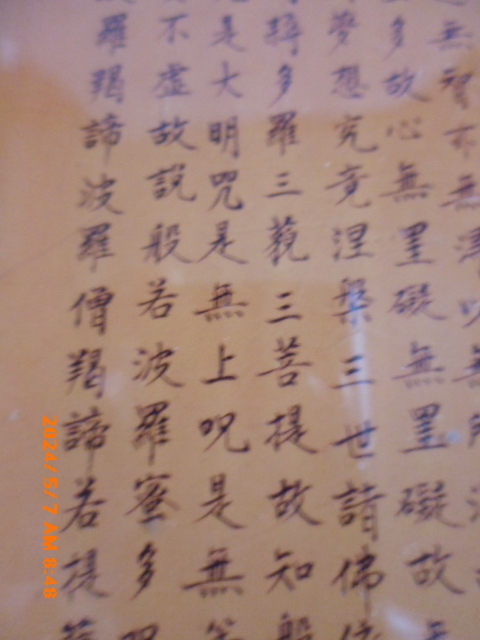 無智亦無得以無所得
多故心無罣礙無罣礙故
夢想究竟涅槃三世諸佛
多羅三藐三菩提故知般
是大明咒是無上咒是無等
不虛故說般若波羅蜜多咒
羅羯諦波羅僧羯諦菩提
2024/5/7 AM 8:48